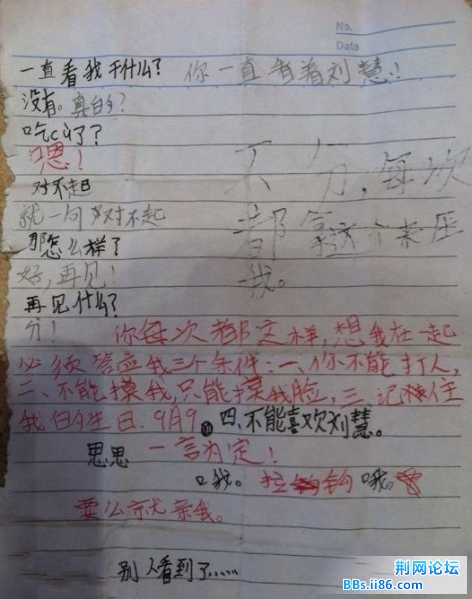 No.
Data
一直看我干什么？ 你一直看着刘慧！
没有。真的？
吃c了？
嗯！
不分，每次
对不起
都拿这个来压
就一句对不起
我。
那怎么样了
好，再见！
再见什么？
分！ 你每次都这样，想我在一起
必须答应我三个条件：一、你不能打人，
二、不能摸我，只能摸我脸，三、记住
我的生日．9月9 四、不能喜欢刘慧。
思思 一言为定！
口我。拉钩 哦。
要么就亲我。
别人看到了......
荆网论坛
BBs.ii86.com